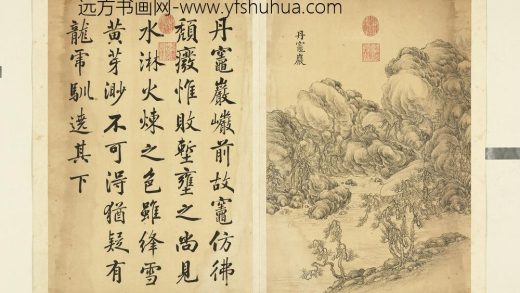 远方书画网-www.yfshuhua.com
丹竈巖
丹竈巖巗前故竈仿彿
頹廢惟敗塹壅之尚見
水淋火煉之色雖絳雪
黄芽渺不可淂猶疑有
龍虎馴遶其下